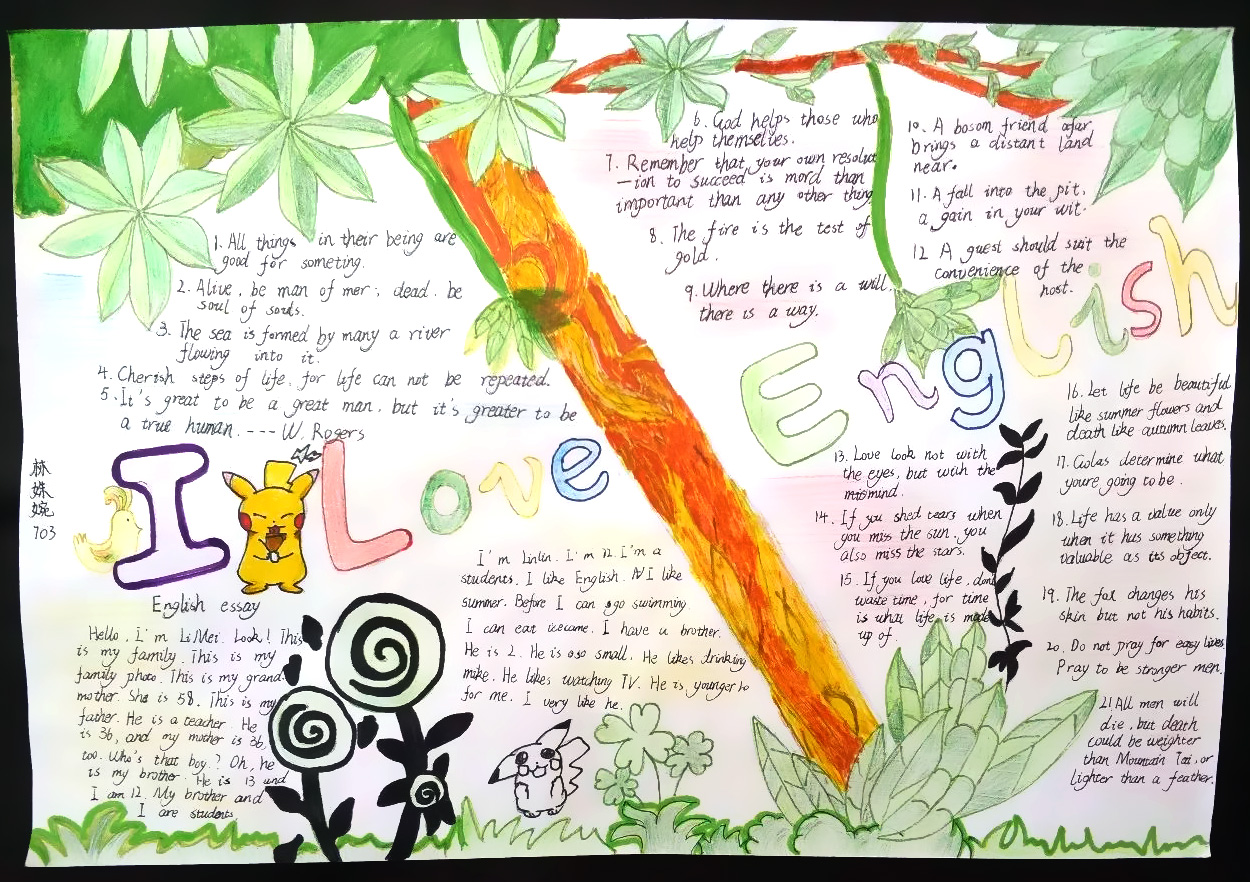 1. All things in their being are
good for someting.
2. Alive, be man of mer, dead. be
soul of souls.
3. The sea is formed by many a river
flowing into it.
4. Cherish steps of life, for life can not be repeated.
5. It's great to be a great man, but it's greater to be
a true human. --- W. Rogers
6. God helps those who
help themselves.
7. Remember that your own resolut
-ion to succeed is mord than
important than any other thing
8. The fire is the test of
gold.
9. Where there is a will.
there is a way.
10. A bosom friend afar
brings a distant land
near.
11. A fall into the pit,
a gain in your wit.
12 A guest should suit the
convenience of the
host.
I Love
English
林姝婉
703
English essay
Hello, I'm LiMei. Look! This
is my family. This is my
family photo. This is my grand-
mother. She is 58. This is my
father. He is a teacher. He
is 36, and my mother is 36,
too. Who's that boy? Oh, he
is my brother. He is 13 and
I am 12. My brother and
I are students
I'm Linlin. I'm 12. I'm a
students. I like English. I like
summer. Before I can go swimming.
I can eat icecame. I have a brother.
He is 2. He is oso small. He likes drinking
mike. He likes watching TV. He is younger to
for me. I very like he.
13. Love look not with
the eyes, but with the
mind.
14. If you shed tears when
you miss the sun, you
also miss the stars.
15. If you love life, dont
waste time, for time
is what life is made
up of.
16. Let life be beautiful
like summer flowers and
death like autumn leaves.
17. Golas determine what
youre going to be.
18. Life has a value only
when it has something
valuable as its object.
19. The fox changes his
skin but not his habits.
20. Do not pray for easy lives.
Pray to be stronger men.
21 All men will
die, but death
could be weighter
than Mountain Tai, or
lighter than a feather.